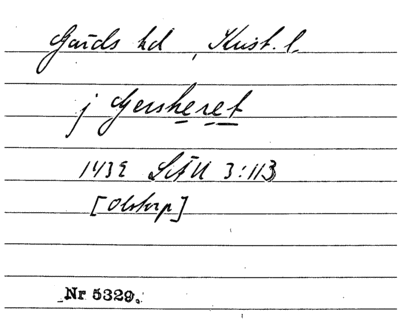 Gärds hd, Krist. l.
j Gersheret
143 LÄU 3:113
[Olstorp]
Nr 5329.